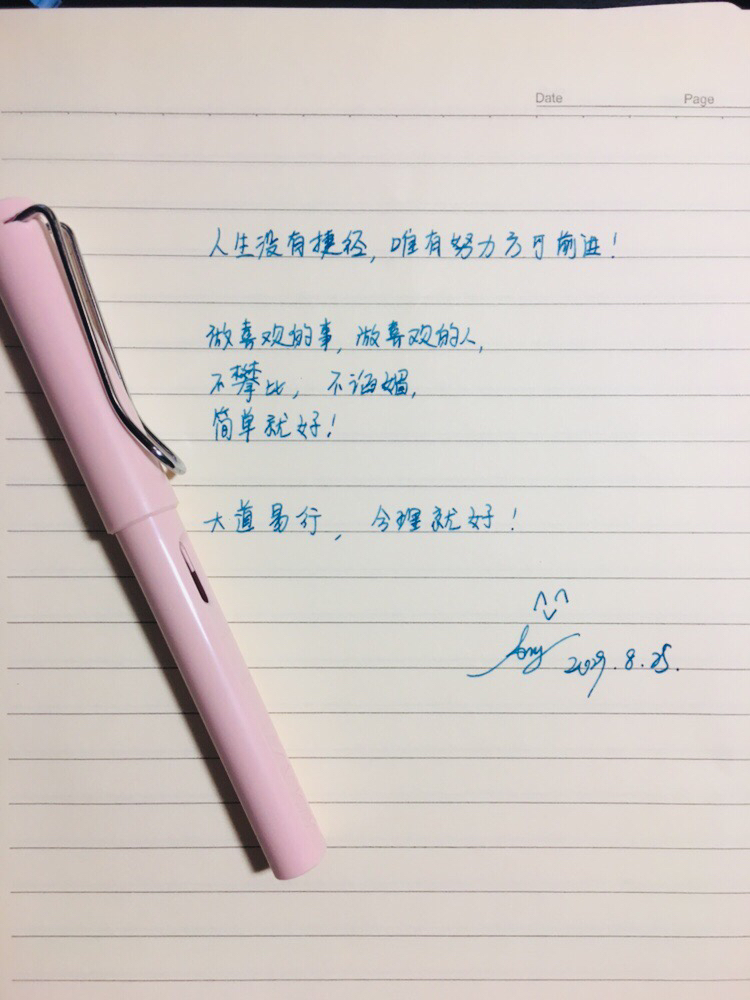 Date Page
人生没有捷径,唯有努力方可前进!
做喜欢的事,做喜欢的人,
不攀比,不谄媚,
简单就好!
大道易行,合理就好!
2019.8.25.